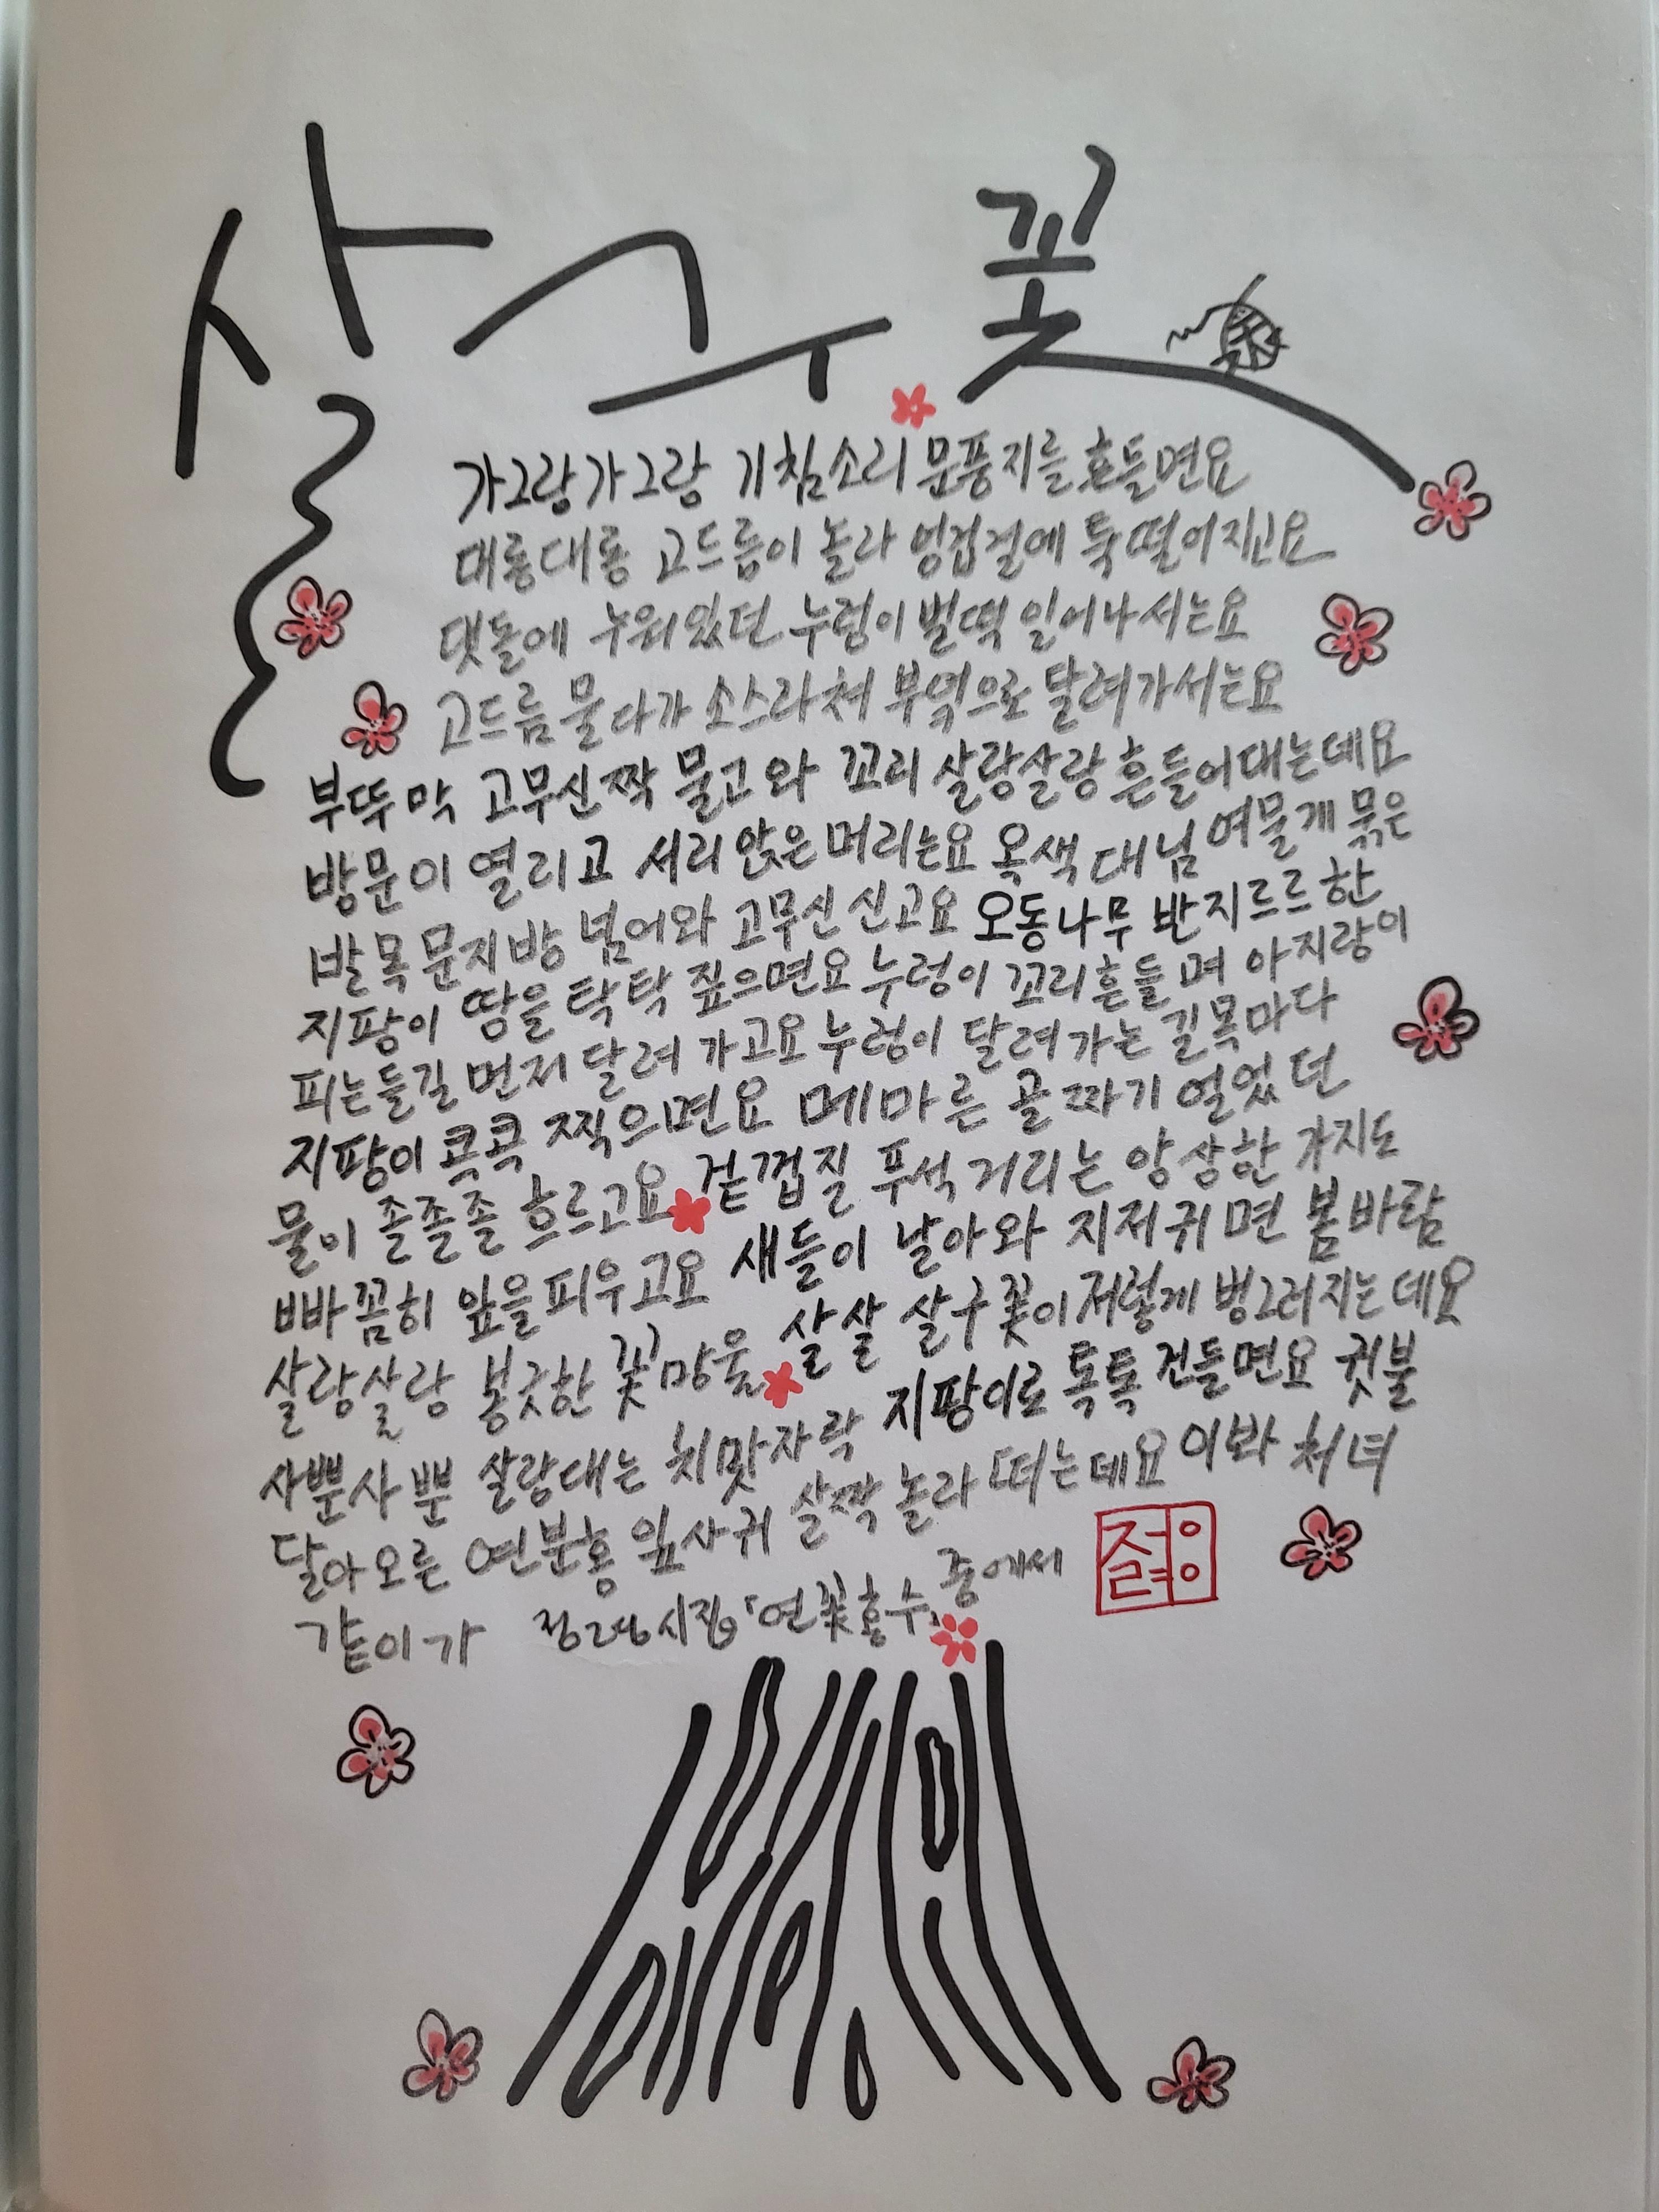 살구꽃
가그랑가그랑 기침소리 문풍지를 흔들면요
대롱대롱 고드름이 놀라 엉겁결에 툭 떨어지고요
댓돌에 누워있던 누렁이 벌떡 일어나서는요
고드름 물다가 소스라쳐 부엌으로 달려가서는요
부뚜막 고무신짝 물고와 꼬리 살랑살랑 흔들어대는데요
방문이 열리고 서리 앉은 머리는요 옥색 대님 여물게 묶은
발목 문지방 넘어와 고무신 신고요 오동나무 반지르르한
지팡이 땅을 탁탁 짚으면요 누렁이 꼬리흔들며 아지랑이
피는들길 먼저 달려 가고요 누렁이 달려가는 길목마다
지팡이 콕콕 찍으면요 메마른 골짜기 얼었던
물이 졸졸졸 흐르고요 겉껍질 푸석거리는 앙상한 가지도
빠꼼히 잎을 피우고요 새들이 날아와 지저귀면 봄바람
살랑살랑 봉긋한 꽃망울 살살 살구꽃이 저렇게 벙그러지는데요
사뿐사뿐 살랑대는 치맛자락 지팡이로 톡톡 건들면요 귓불
달아오른 연분홍 잎사귀 살짝 놀라 떠는데요 이봐 처녀
같이 가 정그량 시집 「연꽃홍수」 중에서